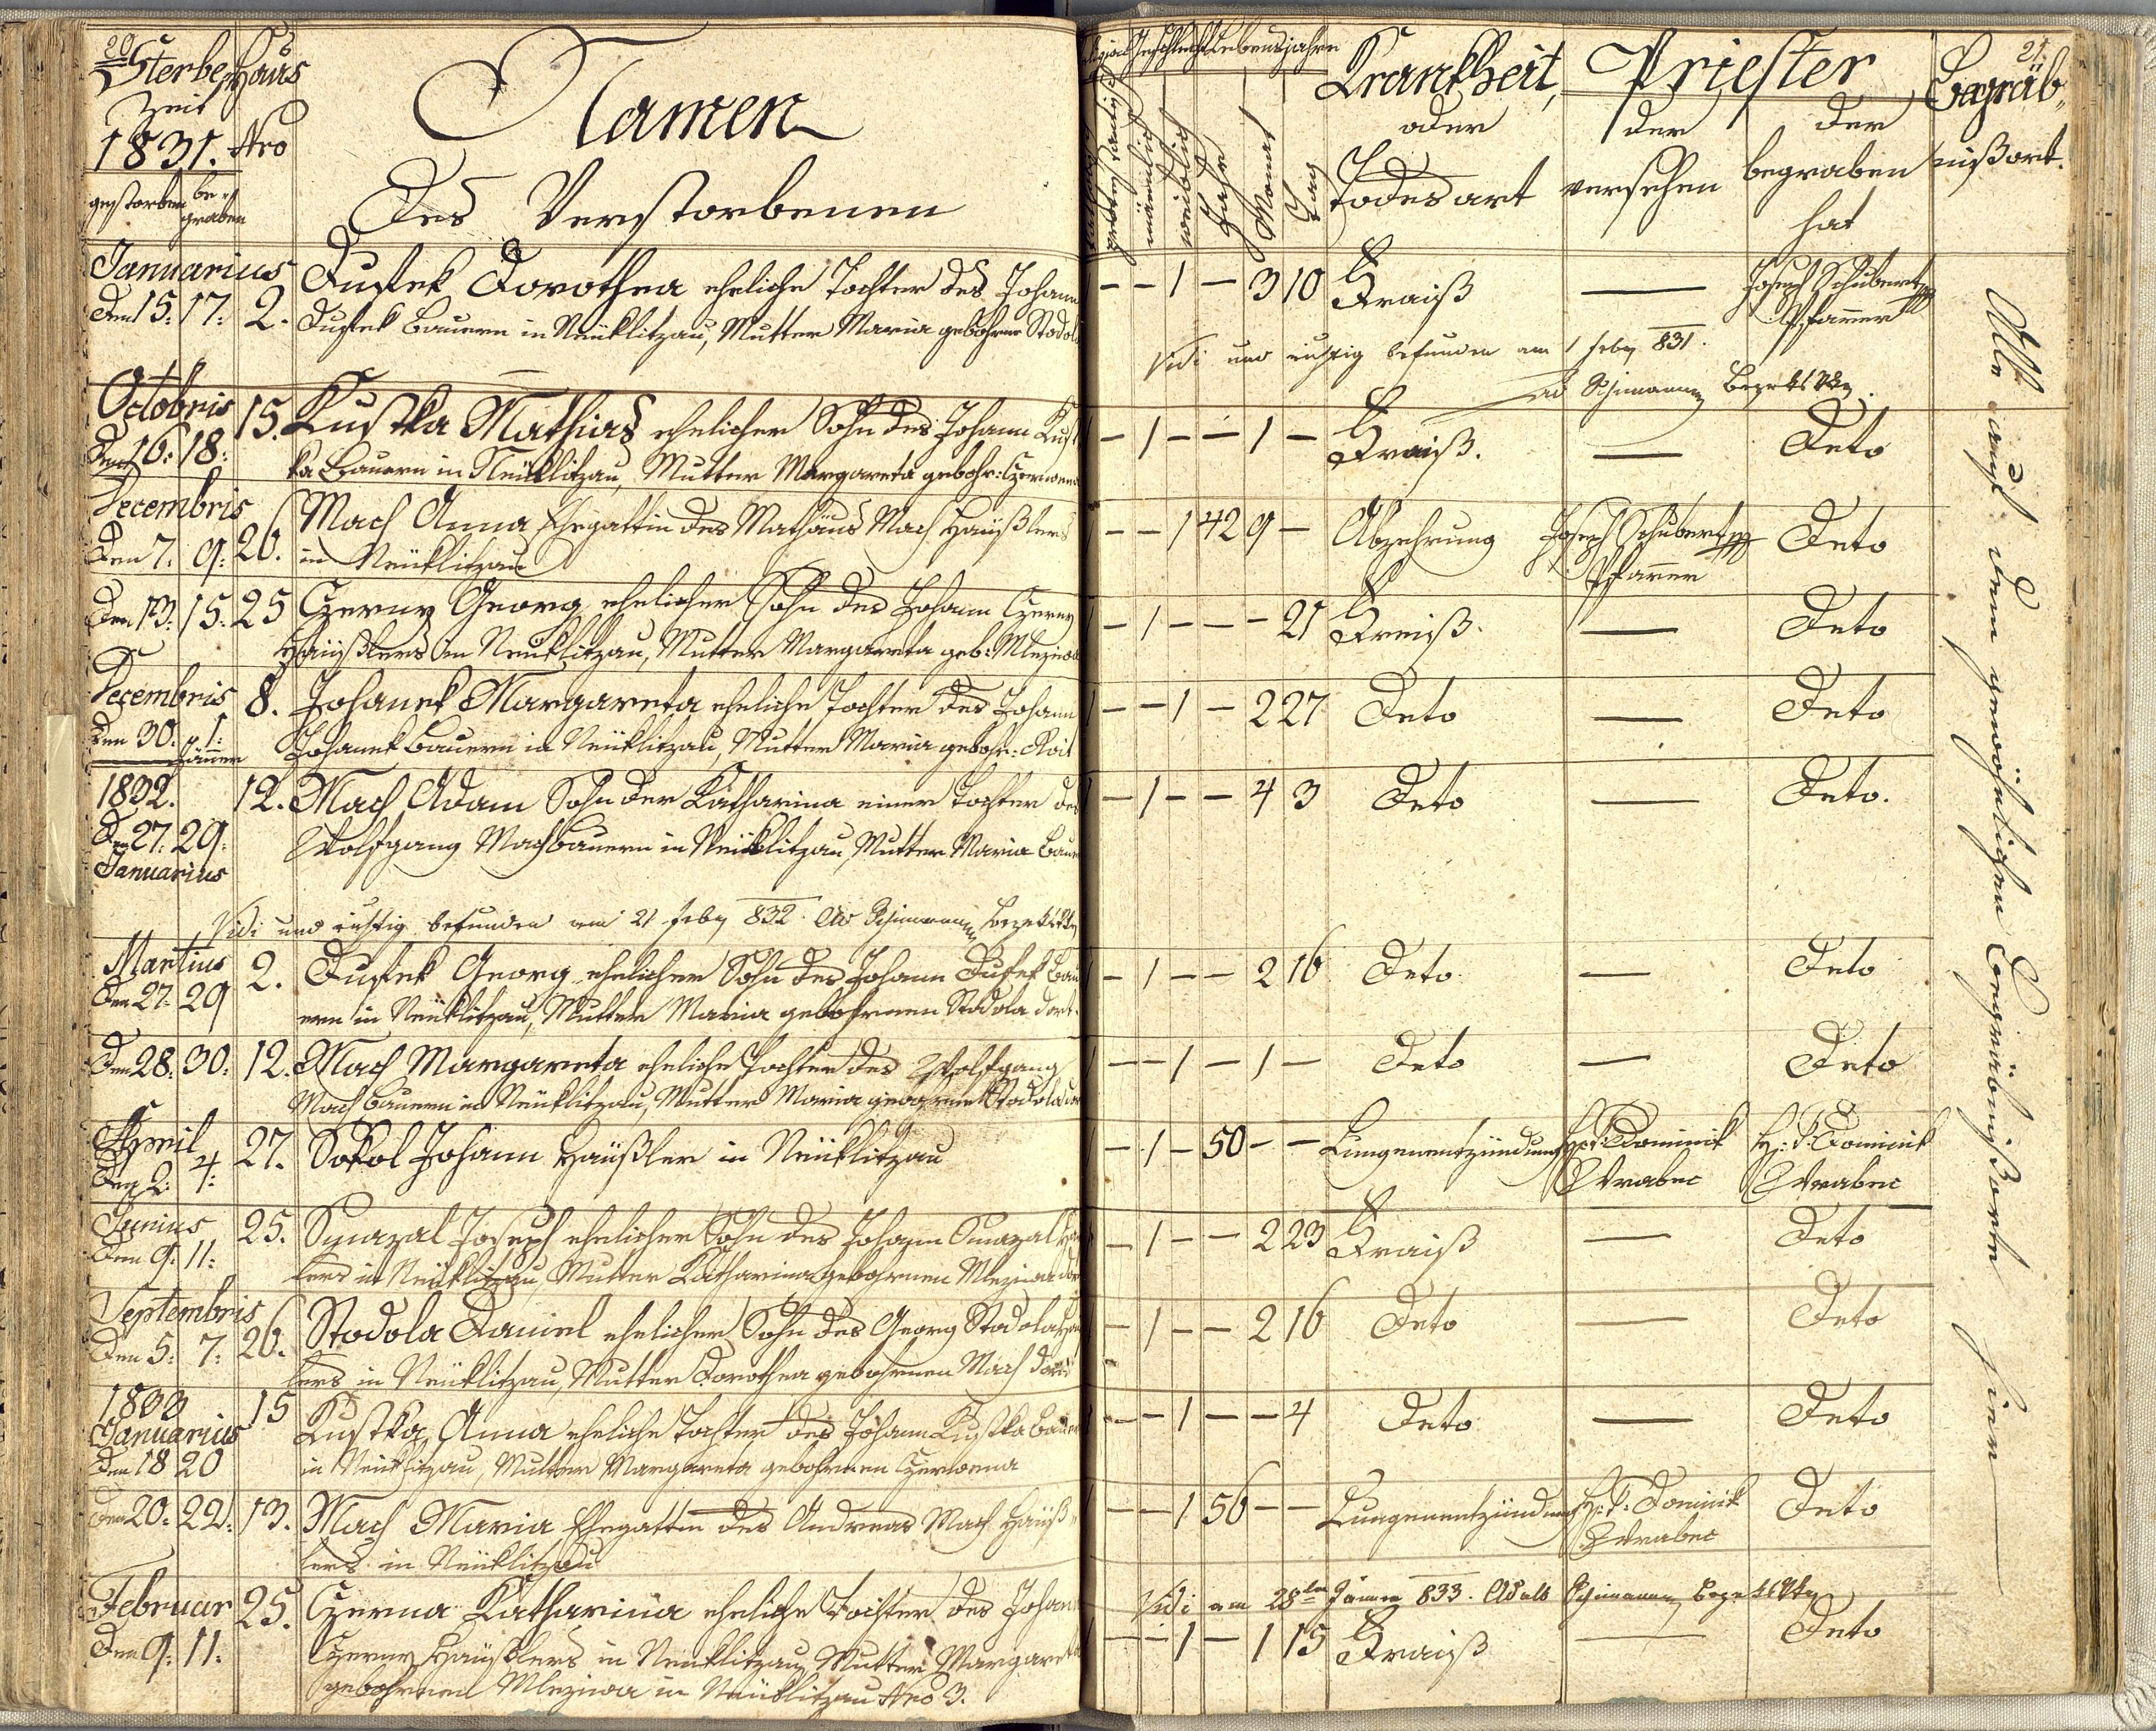 20
Sterbe Haus
Zeit
1831. Nro
gestorben be-
graben
Namen
Des Verstorbenen
Januarius
Den 15: 17: 2. Duffek Dorothea eheliche Tochter des Johann
Duffek Bauern in Neüklitzau, Mutter Maria gebohrne Stodola
Octobris
Den 16: 18: 15. Kustka Mathias ehelicher Sohn des Johann Kust
ka Bauern in Neüklitzau, Mutter Margareta gebohr: Czerwena
Decembris
Den 7: 9: 26. Mach Anna Ehegattin des Mathäus Mach Häüßlers
in Neüklitzau
Den 13: 15: 25 Czerny Georg ehelicher Sohn des Johann Czerny
Häüßlers in Neüklitzau, Mutter Margareta geb: Mleziwa
Decembris
Den 30: 1: Jänner 8. Johanek Margareta eheliche Tochter des Johann
Johanek Bauern in Neüklitzau, Mutter Maria gebohr:
1832.
Den 27: 29: Januarius
12. Mach Adam Sohn der Katharina einer Tochter des
Wolfgang Mach Bauern in Neüklitzau, Mutter Maria
Vidi und richtig befunden am 21 feby 832.
Martius
Den 27: 29 2. Duffek Georg ehelicher Sohn des Johann Duffek Bau
ern in Neüklitzau, Mutter Maria gebohrnen Stodola dort.
Den 28: 30: 12. Mach Margareta eheliche Tochter des Wolfgang
Mach Bauern in Neüklitzau, Mutter Maria gebohrnen Stodola
April
Den 2: 4: 27. Sokol Johann Häüßler in Neüklitzau
Junius
Den 9: 11: 25. Joseph ehelicher Sohn des Johann
lers in Neüklitzau, Mutter Katharina gebohrnen Mleziwa
Septembris
Den 5: 7: 26. Stodola Daniel ehelicher Sohn des Georg Stodola
lers in Neüklitzau, Mutter Dorothea gebohrnen Mach
1833
Januarius
Den 18 20 15 Kustka Anna eheliche Tochter des Johann Kustka Bauern
in Neüklitzau, Mutter Margareta gebohrnen Czerwena
Den 20: 22: 13. Mach Maria Ehegattin des Andreas Mach Häüß
lers in Neüklitzau
Februar
Den 9: 11: 25. Czerna Katharina eheliche Tochter des Johann
Czerny Häüßlers in Neüklitzau, Mutter Margareta
gebohrnen Mleziwa in Neüklitzau Nro 3.
21
Geschlecht Lebensjahre
protestantisch
männlich
weiblich
Jahre
Monat
Tag
Krankheit,
oder
Todesart
Priester
der
versehen
der
begraben
hat
Begräb,,
nißort.
1 – – 1 – 3 10 Fraiß — Joseph Schubert
Pfarrer
Vidi und richtig befunden am 1 feby 831.
1 – 1 – – 1 – Fraiß. — Deto
1 – – 1 42 9 – Abzehrung Joseph Schubert Deto
Pfarrer
1 – 1 – – – 21 Freiß. — Deto
1 – – 1 – 2 27 Deto — Deto
1 – 1 – – 4 3 Deto — Deto.
1 – 1 – – 2 16 Deto — Deto
1 – – 1 – 1 – Deto — Deto
1 – 1 – 50 – – Lungenentzündung H: P: Dominik H: P: Dominik
Wrabec Wrabec
– 1 – – 2 23 Fraiß — Deto
– 1 – – 2 16 Deto — Deto
– – 1 – – 4 Deto — Deto
– – 1 56 – – Lungenentzündung H: P: Dominik Deto
Wrabec
Vidi am 28ten Jänner 833.
– – 1 – 1 15 Fraiß — Deto
Alle auf dem gewöhnlichen Begräbnißorte hier